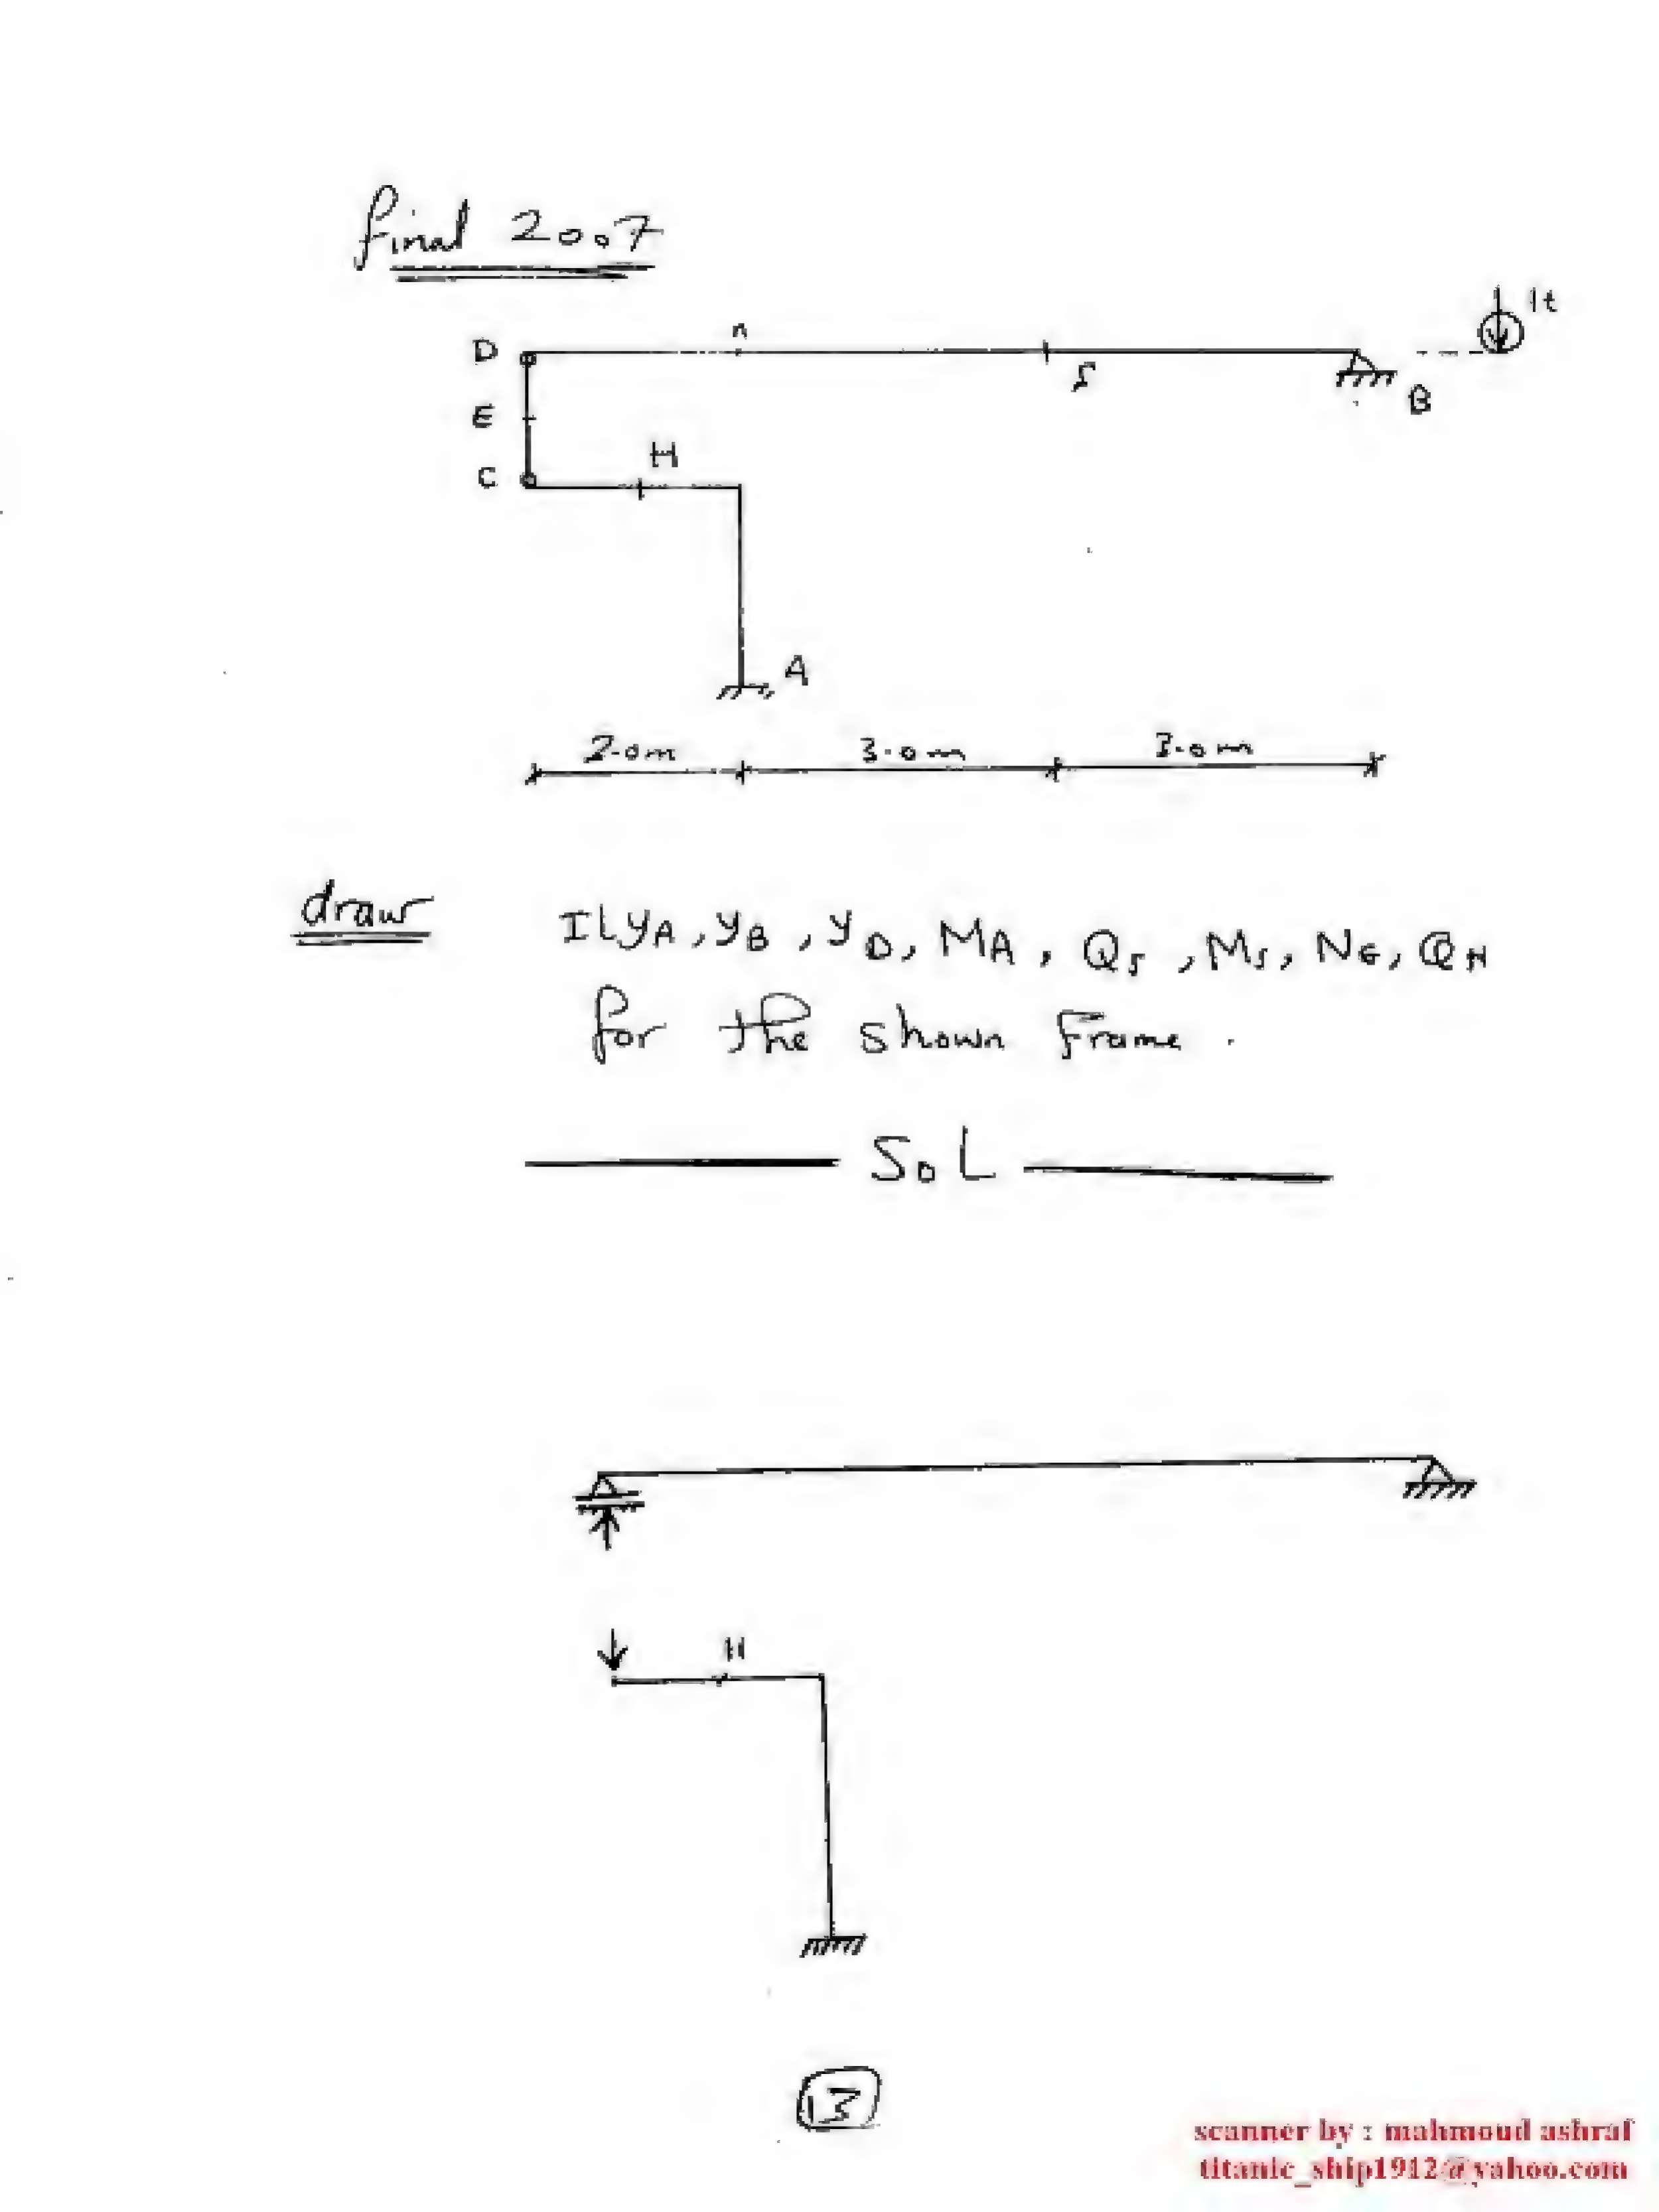 final 2007
1t
D
n
S
B
E
H
C
A
2.0m 3.0m 3.0m
draw ILyA, yB, yD, MA, QS, MS, NE, QH
for the shown frame.
SOL
H
13
scanner by : mahmoud ashraf
titanic_ship1912@yahoo.com